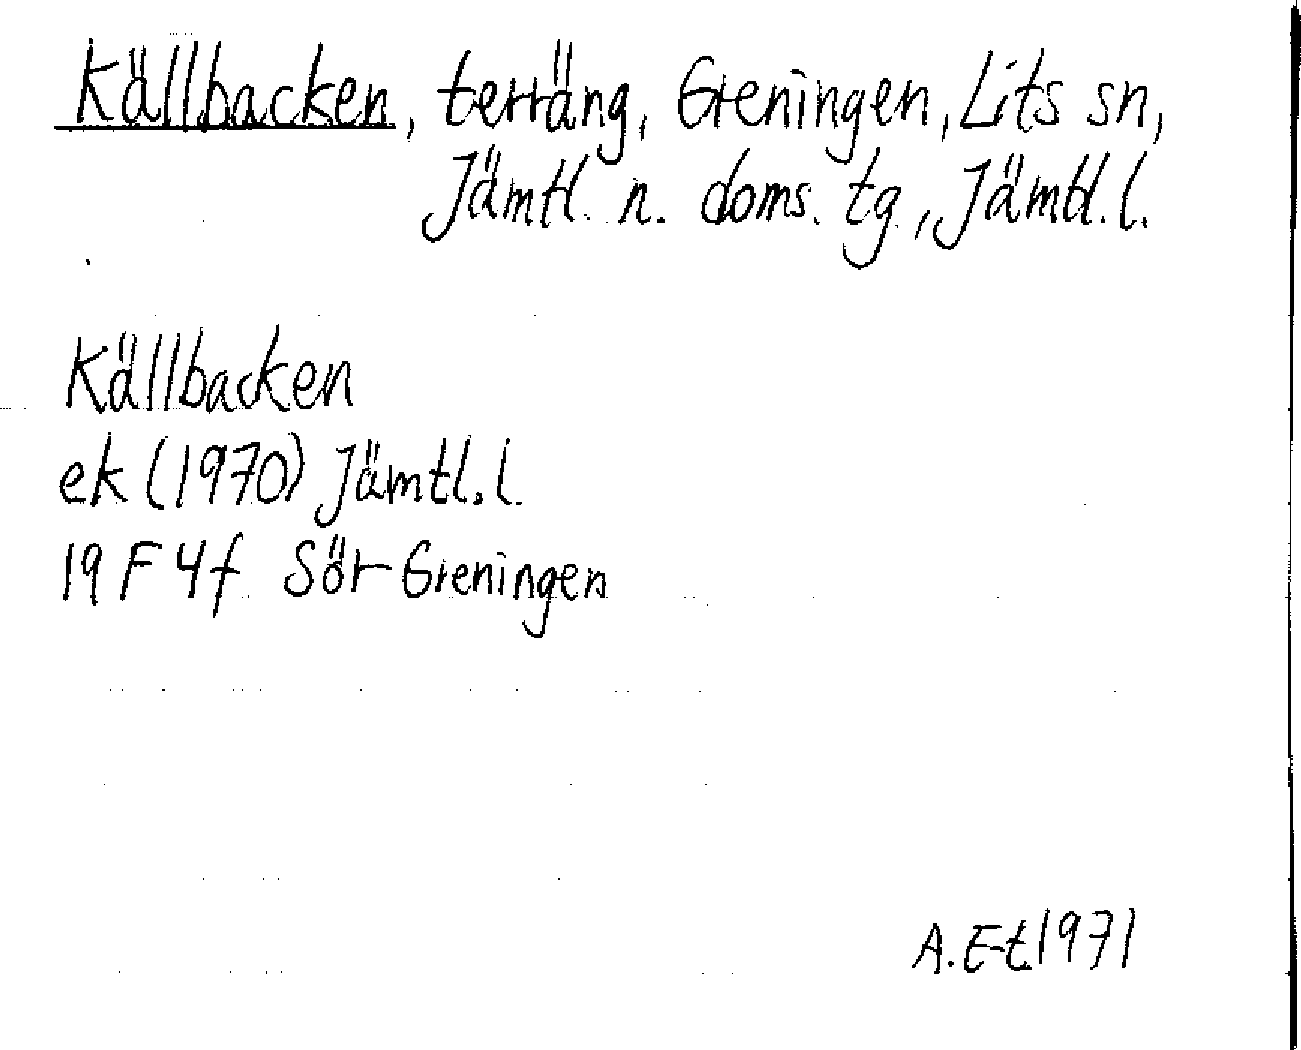 Källbacken, terräng, Greningen, Lits sn,
Jämtl. n. doms. tg, Jämtl. l.
Källbacken
ek (1970) Jämtl. l.
19 F 4f Sör-Greningen
A. E-t 1971